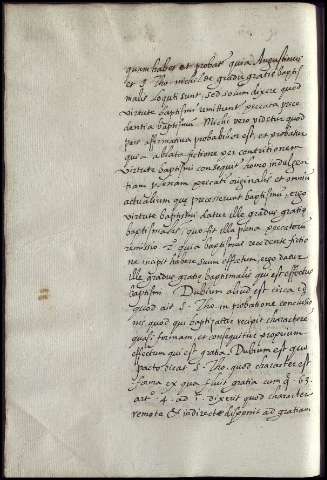 quam habet et probat quia Augustinus
et S. Tho. nichil de gradu gratie baptis
malis loquti sunt, sed solum dixere quod
virtute baptismi remittunt peccata prece
dentia baptismum. Michi vero videtur quod
pars affirmativa probabilior est, et probatur
quia ablata fictione per contritionem
virtute baptismi consequit homo indulgen
tiam penam peccati originalis et omnium
actualium que precesserunt baptismum, ergo
virtute baptismi datur ille gradus gratie
baptismalis, quo fit illa plena peccatorum
remissio. 2º quia baptismus recedente fictio
ne incipit habere suum effectum, ergo datur
ille gradus gratie baptismalis qui est effectus
baptismi. Dubium aliud est circa id
quod ait S. Tho. in probatione conclusio
nis, quod qui baptizatur recipit characterem
quasi formam, et consequitur proprium
effectum qui est gratia. Dubium est quo
pacto dicat S. Tho. quod character est
forma ex qua fluit gratia cum q. 63.
art. 4. ad 1. dixerit quod character
remote et indirecte disponit ad gratiam